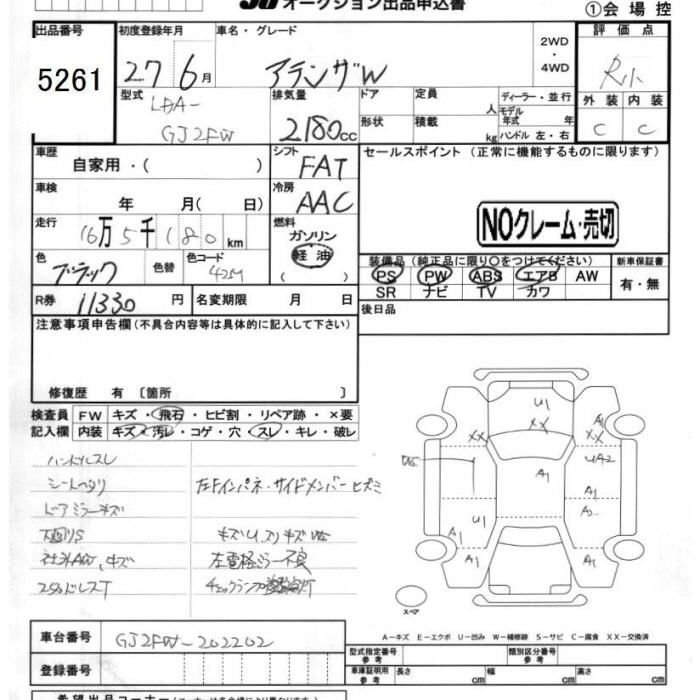 オークション出品申込書
①会場控
出品番号 5261
初度登録年月 27 6月
車名・グレード アテンザW
2WD・4WD
評価点
外装 C 内装 C
型式 LDA-GJ2FW
排気量 2180cc
ドア 形状
定員 人
積載 kg
ディーラー・並行
モデル年式 年
ハンドル 左・右
車歴 自家用・( )
シフト FAT
セールスポイント(正常に機能するものに限ります)
車検 年 月( 日)
冷房 AAC
NOクレーム・売切
走行 16万5千180km
燃料 ガソリン 軽油 ( )
装備品(純正品に限り○をつけてください)
新車保証書 有・無
PS PW ABS エアB AW
SR ナビ TV カワ
色 ブラック 色替
色コード 42M
R券 11330円
名変期限 月 日
後日品
注意事項申告欄(不具合内容等は具体的に記入して下さい)
修復歴 有 〔箇所 〕
検査員記入欄
FW キズ・飛石・ヒビ割・リペア跡・×要
内装 キズ・汚レ・コゲ・穴・スレ・キレ・破レ
ハンドルスレ
シートヘタリ
左Fインパネ・サイドメンバーヒズミ
ドアミラーキズ
下回りS
キズU、スリキズ
社外AW、キズ
左電格ミラー不良
スタッドレスT
チェックランプ
U1
XX
XX
A1
XX
UA2
A1
A1
A2
U1
A1
A1
A1
スペア
A-キズ E-エクボ U-凹み W-補修跡 S-サビ C-腐食 XX-交換済
車台番号 GJ2FW-202202
型式指定番号 参考
類別区分番号 参考
登録番号
車庫証明用 参考 長さ cm 幅 cm 高さ cm
希望出品コーナー